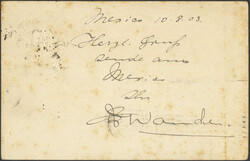 Mexico 10.8.03.
Herzl. Gruß
sende aus
Mexico
Ihr